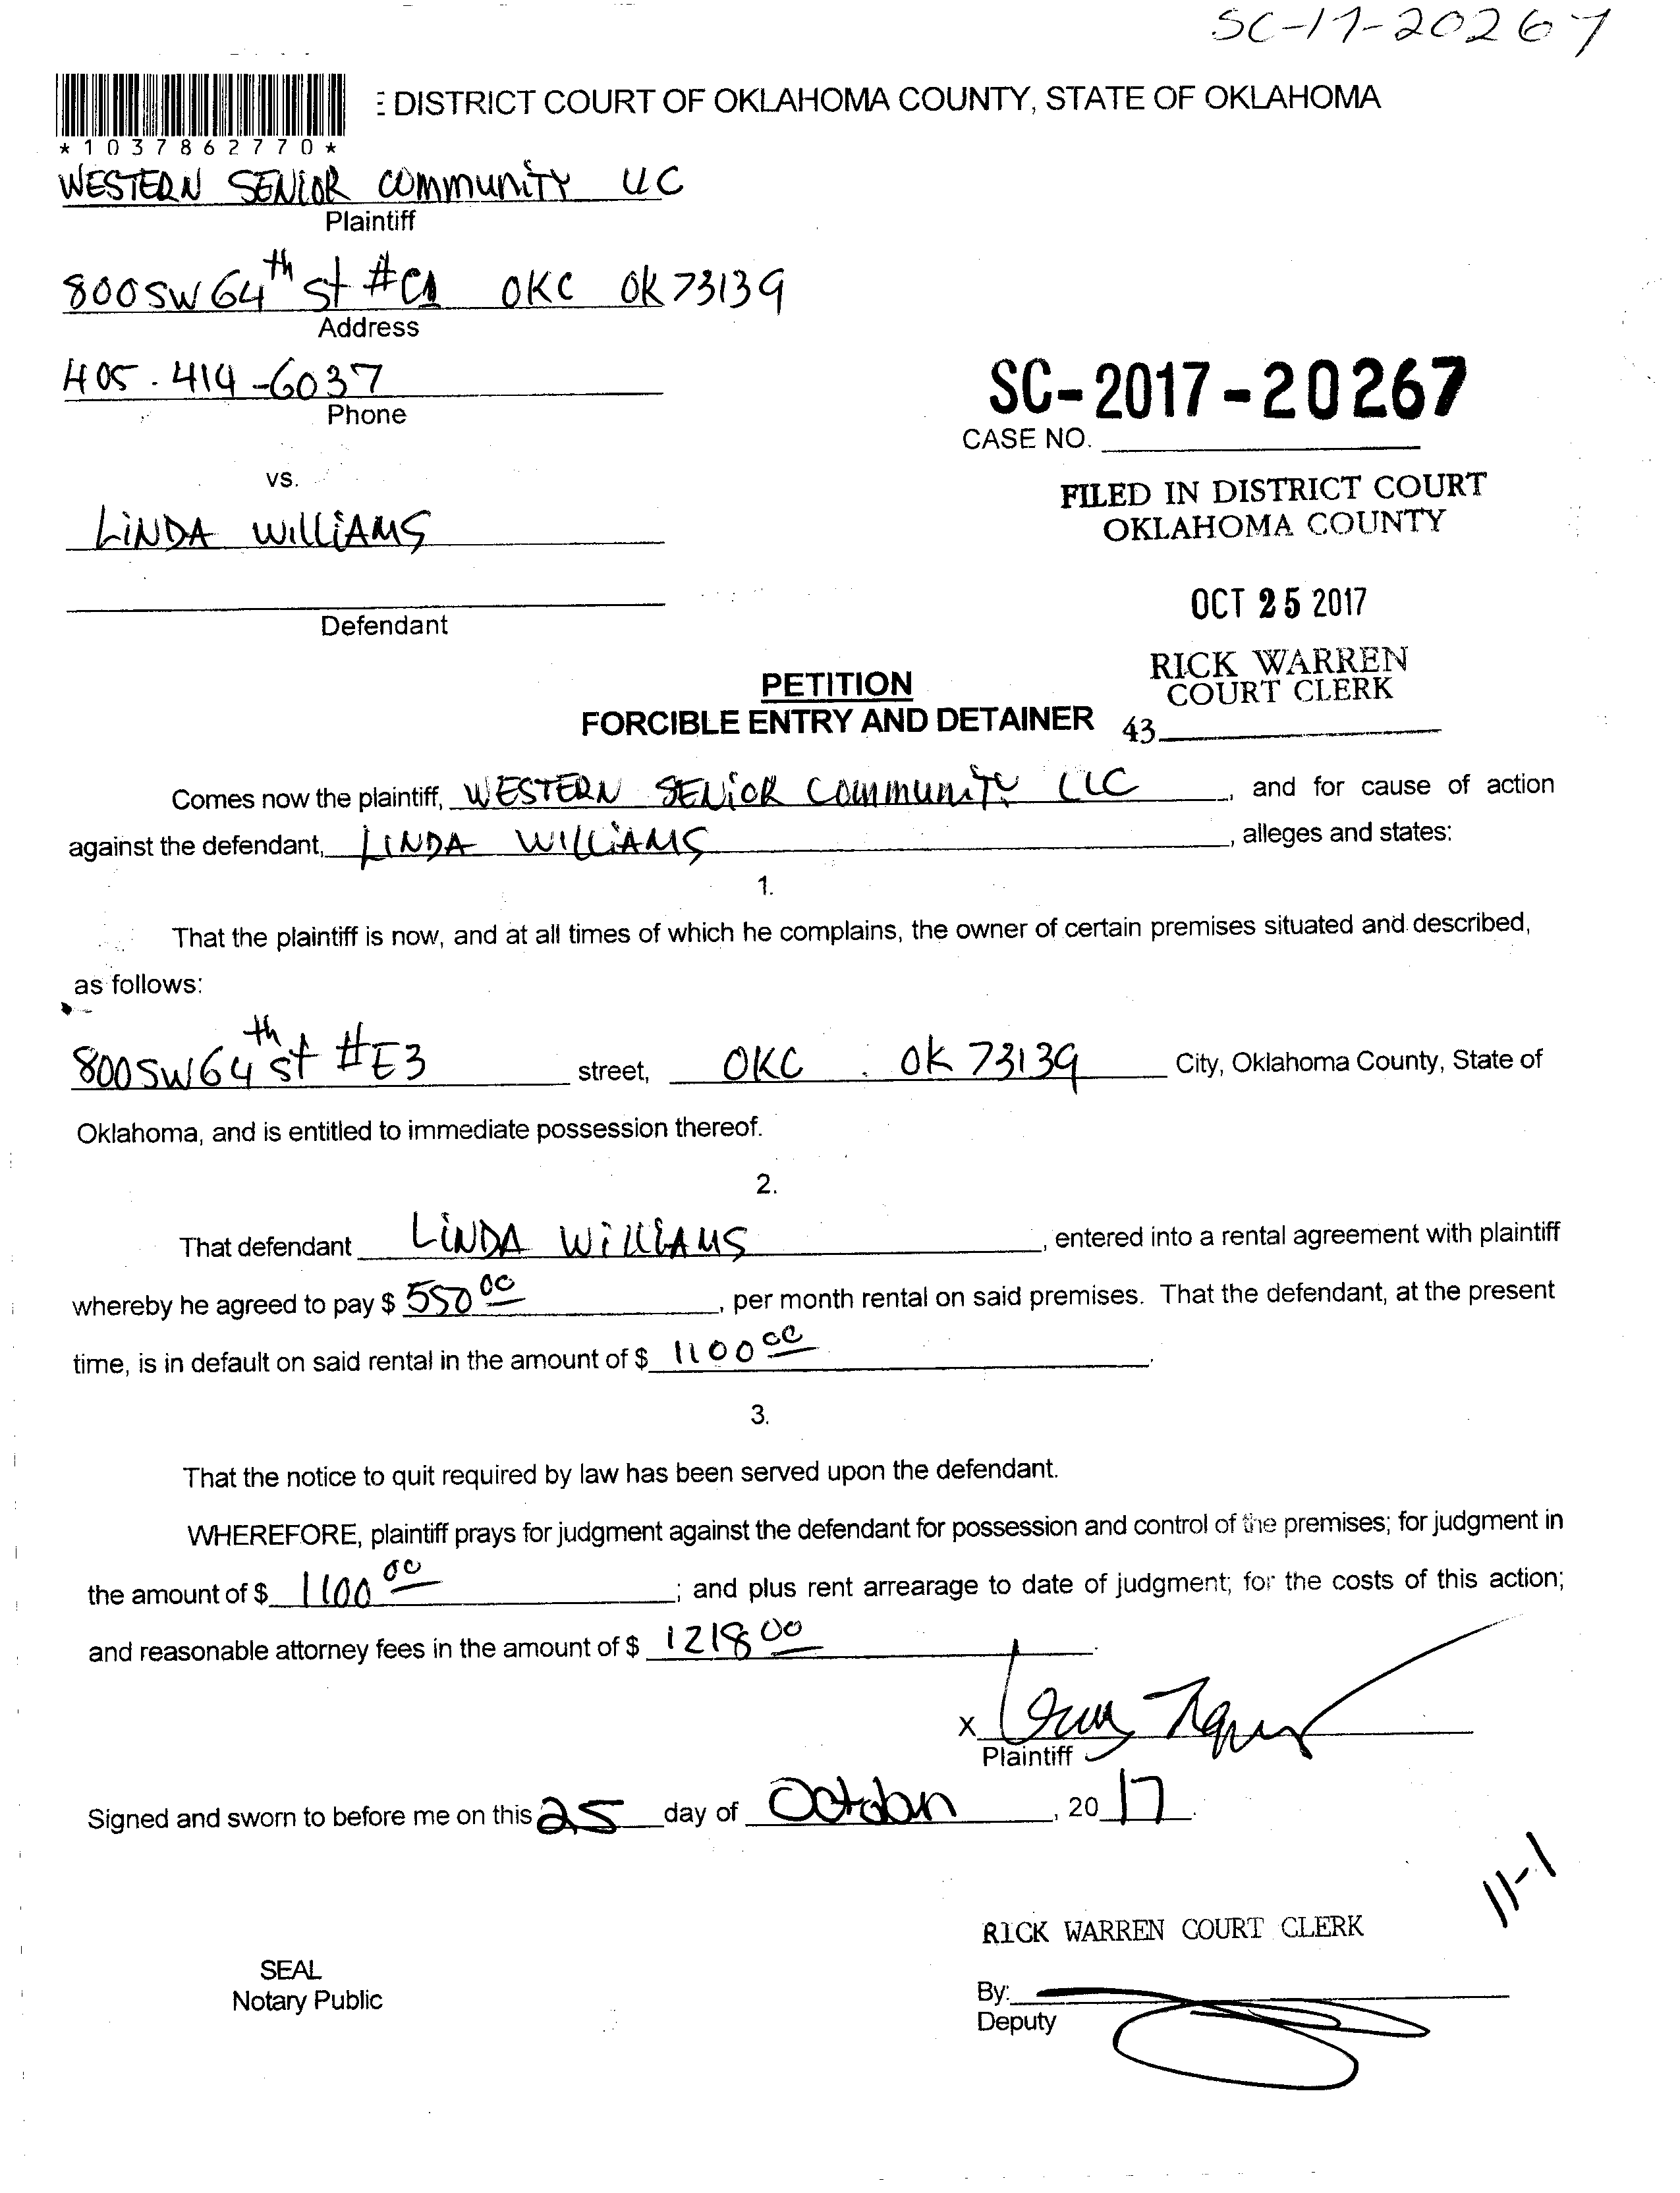 SC-17-20267
DISTRICT COURT OF OKLAHOMA COUNTY, STATE OF OKLAHOMA
*1037862770*
WESTERN SENIOR COMMUNITY LLC
Plaintiff
800 SW 64th St #C1 OKC OK 73139
Address
405.414-6037
Phone
SC-2017-20267
CASE NO.
vs.
FILED IN DISTRICT COURT
OKLAHOMA COUNTY
LINDA WILLIAMS
OCT 25 2017
Defendant
RICK WARREN
COURT CLERK
43
PETITION
FORCIBLE ENTRY AND DETAINER
Comes now the plaintiff, WESTERN SENIOR COMMUNITY LLC, and for cause of action
against the defendant, LINDA WILLIAMS, alleges and states:
1.
That the plaintiff is now, and at all times of which he complains, the owner of certain premises situated and described,
as follows:
800 SW 64th St #E3 street, OKC. OK 73139 City, Oklahoma County, State of
Oklahoma, and is entitled to immediate possession thereof.
2.
That defendant LINDA WILLIAMS, entered into a rental agreement with plaintiff
whereby he agreed to pay $ 550 00, per month rental on said premises. That the defendant, at the present
time, is in default on said rental in the amount of $ 1100 00.
3.
That the notice to quit required by law has been served upon the defendant.
WHEREFORE, plaintiff prays for judgment against the defendant for possession and control of the premises; for judgment in
the amount of $ 1100 00; and plus rent arrearage to date of judgment; for the costs of this action;
and reasonable attorney fees in the amount of $ 1218 00.
X
Plaintiff
Signed and sworn to before me on this 25 day of October, 20 17.
11-1
RICK WARREN COURT CLERK
SEAL
Notary Public
By:
Deputy